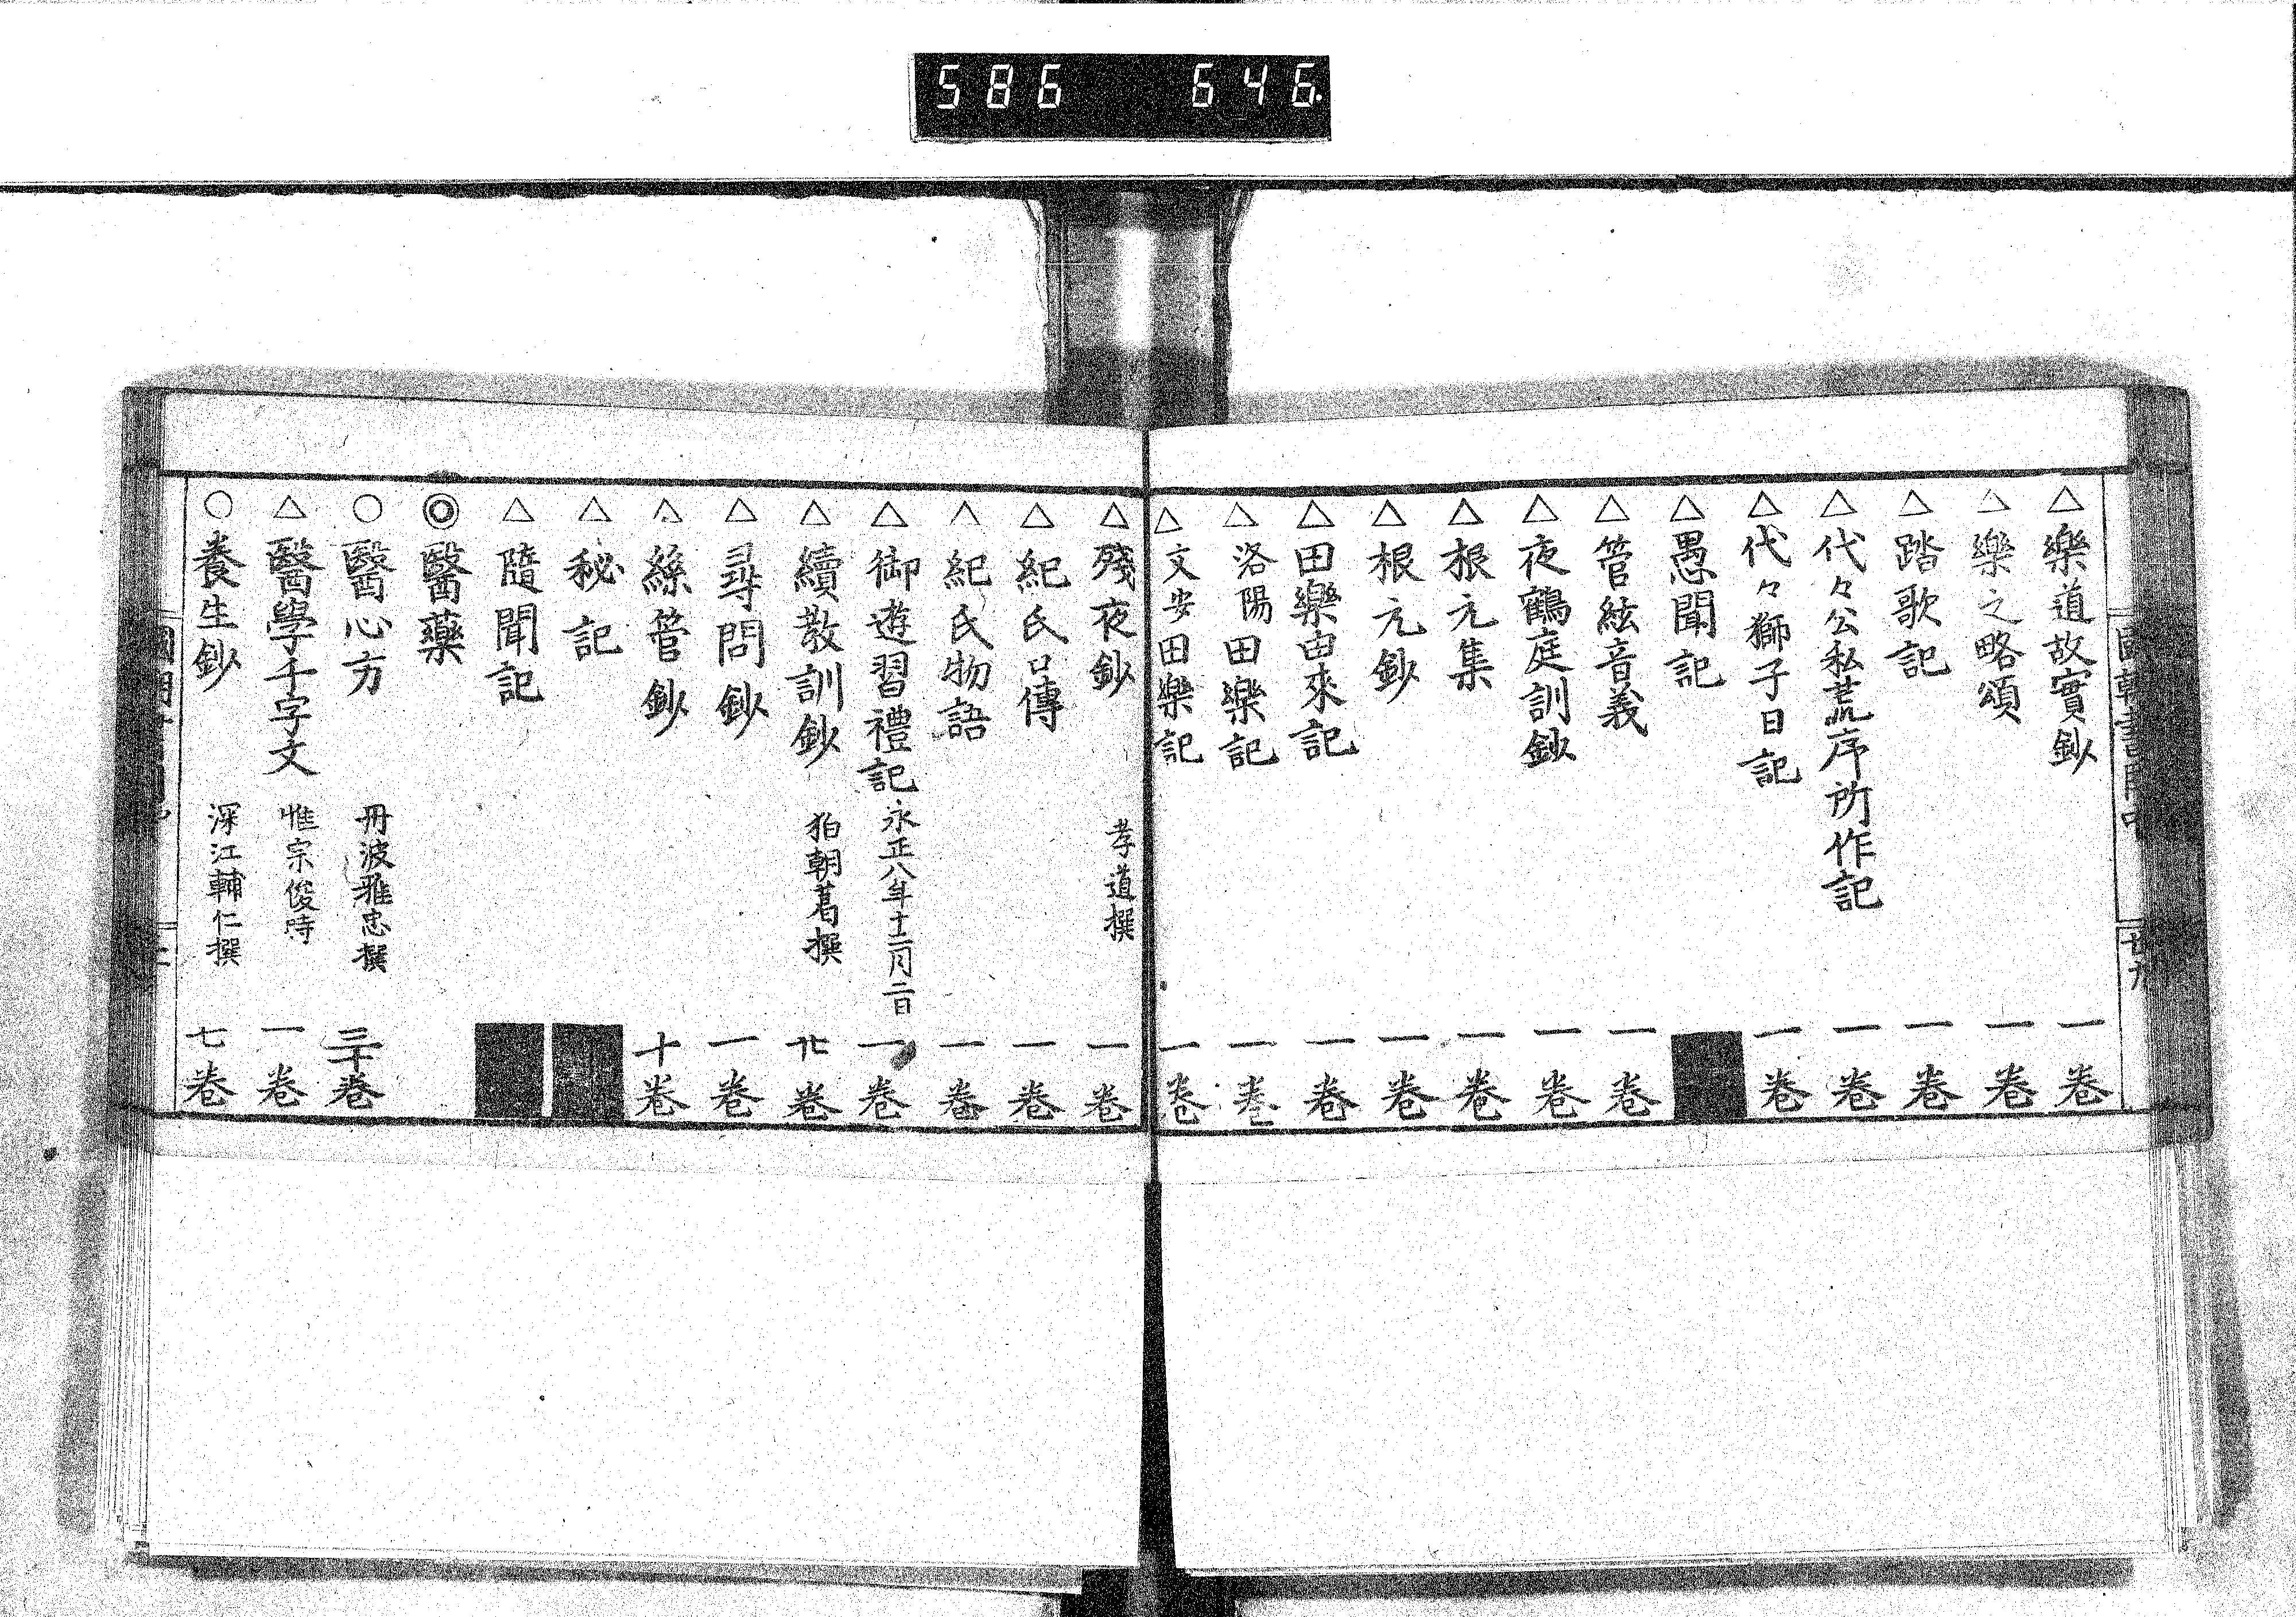 586 646.
△樂道故實鈔 一卷
△樂之略頌 一卷
△踏歌記 一卷
△代々公私荒序所作記 一卷
△代々獅子日記 一卷
△愚聞記
△管絃音義 一卷
△夜鶴庭訓鈔 一卷
△根元集 一卷
△根元鈔 一卷
△田樂由來記 一卷
△洛陽田樂記 一卷
△文安田樂記 一卷
△殘夜鈔 孝道撰 一卷
△紀氏口傳 一卷
△紀氏物語 一卷
△御遊習禮記 永正八年十二月二日 一卷
△續敎訓鈔 狛朝葛撰 廿卷
△尋問鈔 一卷
△絲管鈔 十卷
△秘記
△隨聞記
◎醫藥
○醫心方 丹波雅忠撰 三十卷
△醫學千字文 惟宗俊時 一卷
○養生鈔 深江輔仁撰 七卷